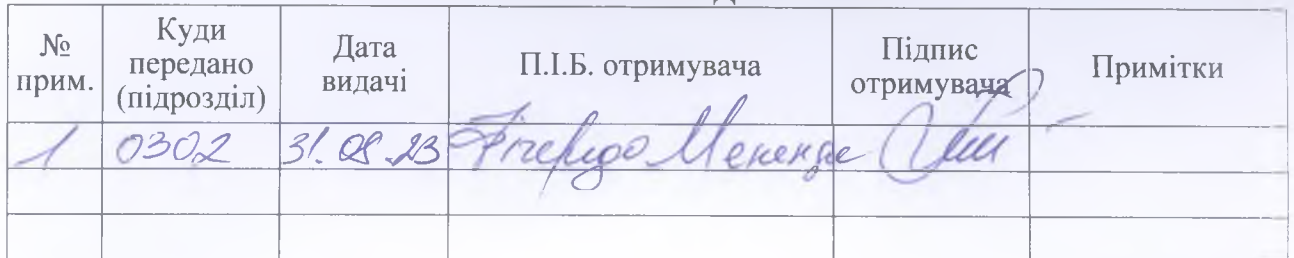 № прим. Куди передано (підрозділ) Дата видачі П.І.Б. отримувача Підпис отримувача Примітки
1 0302 31.08.23 Менендес -